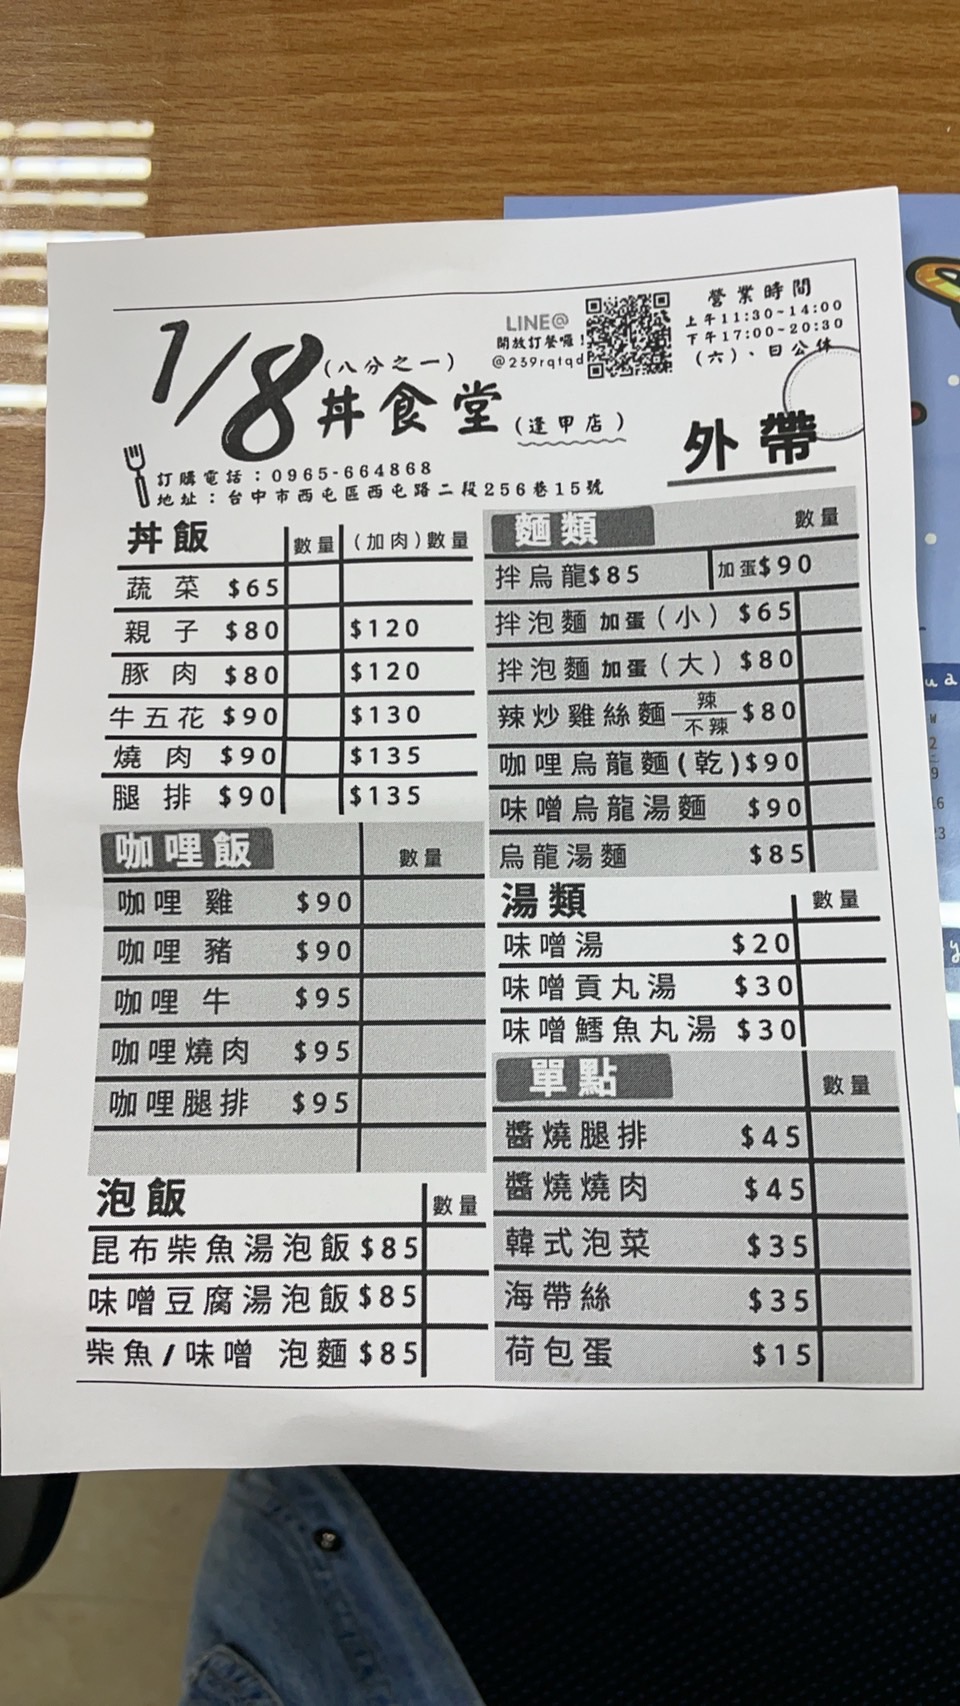 1/8 (八分之一)
丼食堂 (逢甲店)
LINE@
開放訂餐囉!
@239rqtqd
營業時間
上午11:30~14:00
下午17:00~20:30
(六)、日公休
外帶
訂購電話:0965-664868
地址:台中市西屯區西屯路二段256巷15號
丼飯 數量 (加肉)數量
蔬菜 $65
親子 $80 $120
豚肉 $80 $120
牛五花 $90 $130
燒肉 $90 $135
腿排 $90 $135
咖哩飯 數量
咖哩 雞 $90
咖哩 豬 $90
咖哩 牛 $95
咖哩燒肉 $95
咖哩腿排 $95
泡飯 數量
昆布柴魚湯泡飯 $85
味噌豆腐湯泡飯 $85
柴魚/味噌 泡麵 $85
麵類 數量
拌烏龍$85 加蛋$90
拌泡麵 加蛋(小) $65
拌泡麵 加蛋(大) $80
辣炒雞絲麵 辣 不辣 $80
咖哩烏龍麵(乾)$90
味噌烏龍湯麵 $90
烏龍湯麵 $85
湯類 數量
味噌湯 $20
味噌貢丸湯 $30
味噌鱈魚丸湯 $30
單點 數量
醬燒腿排 $45
醬燒燒肉 $45
韓式泡菜 $35
海帶絲 $35
荷包蛋 $15